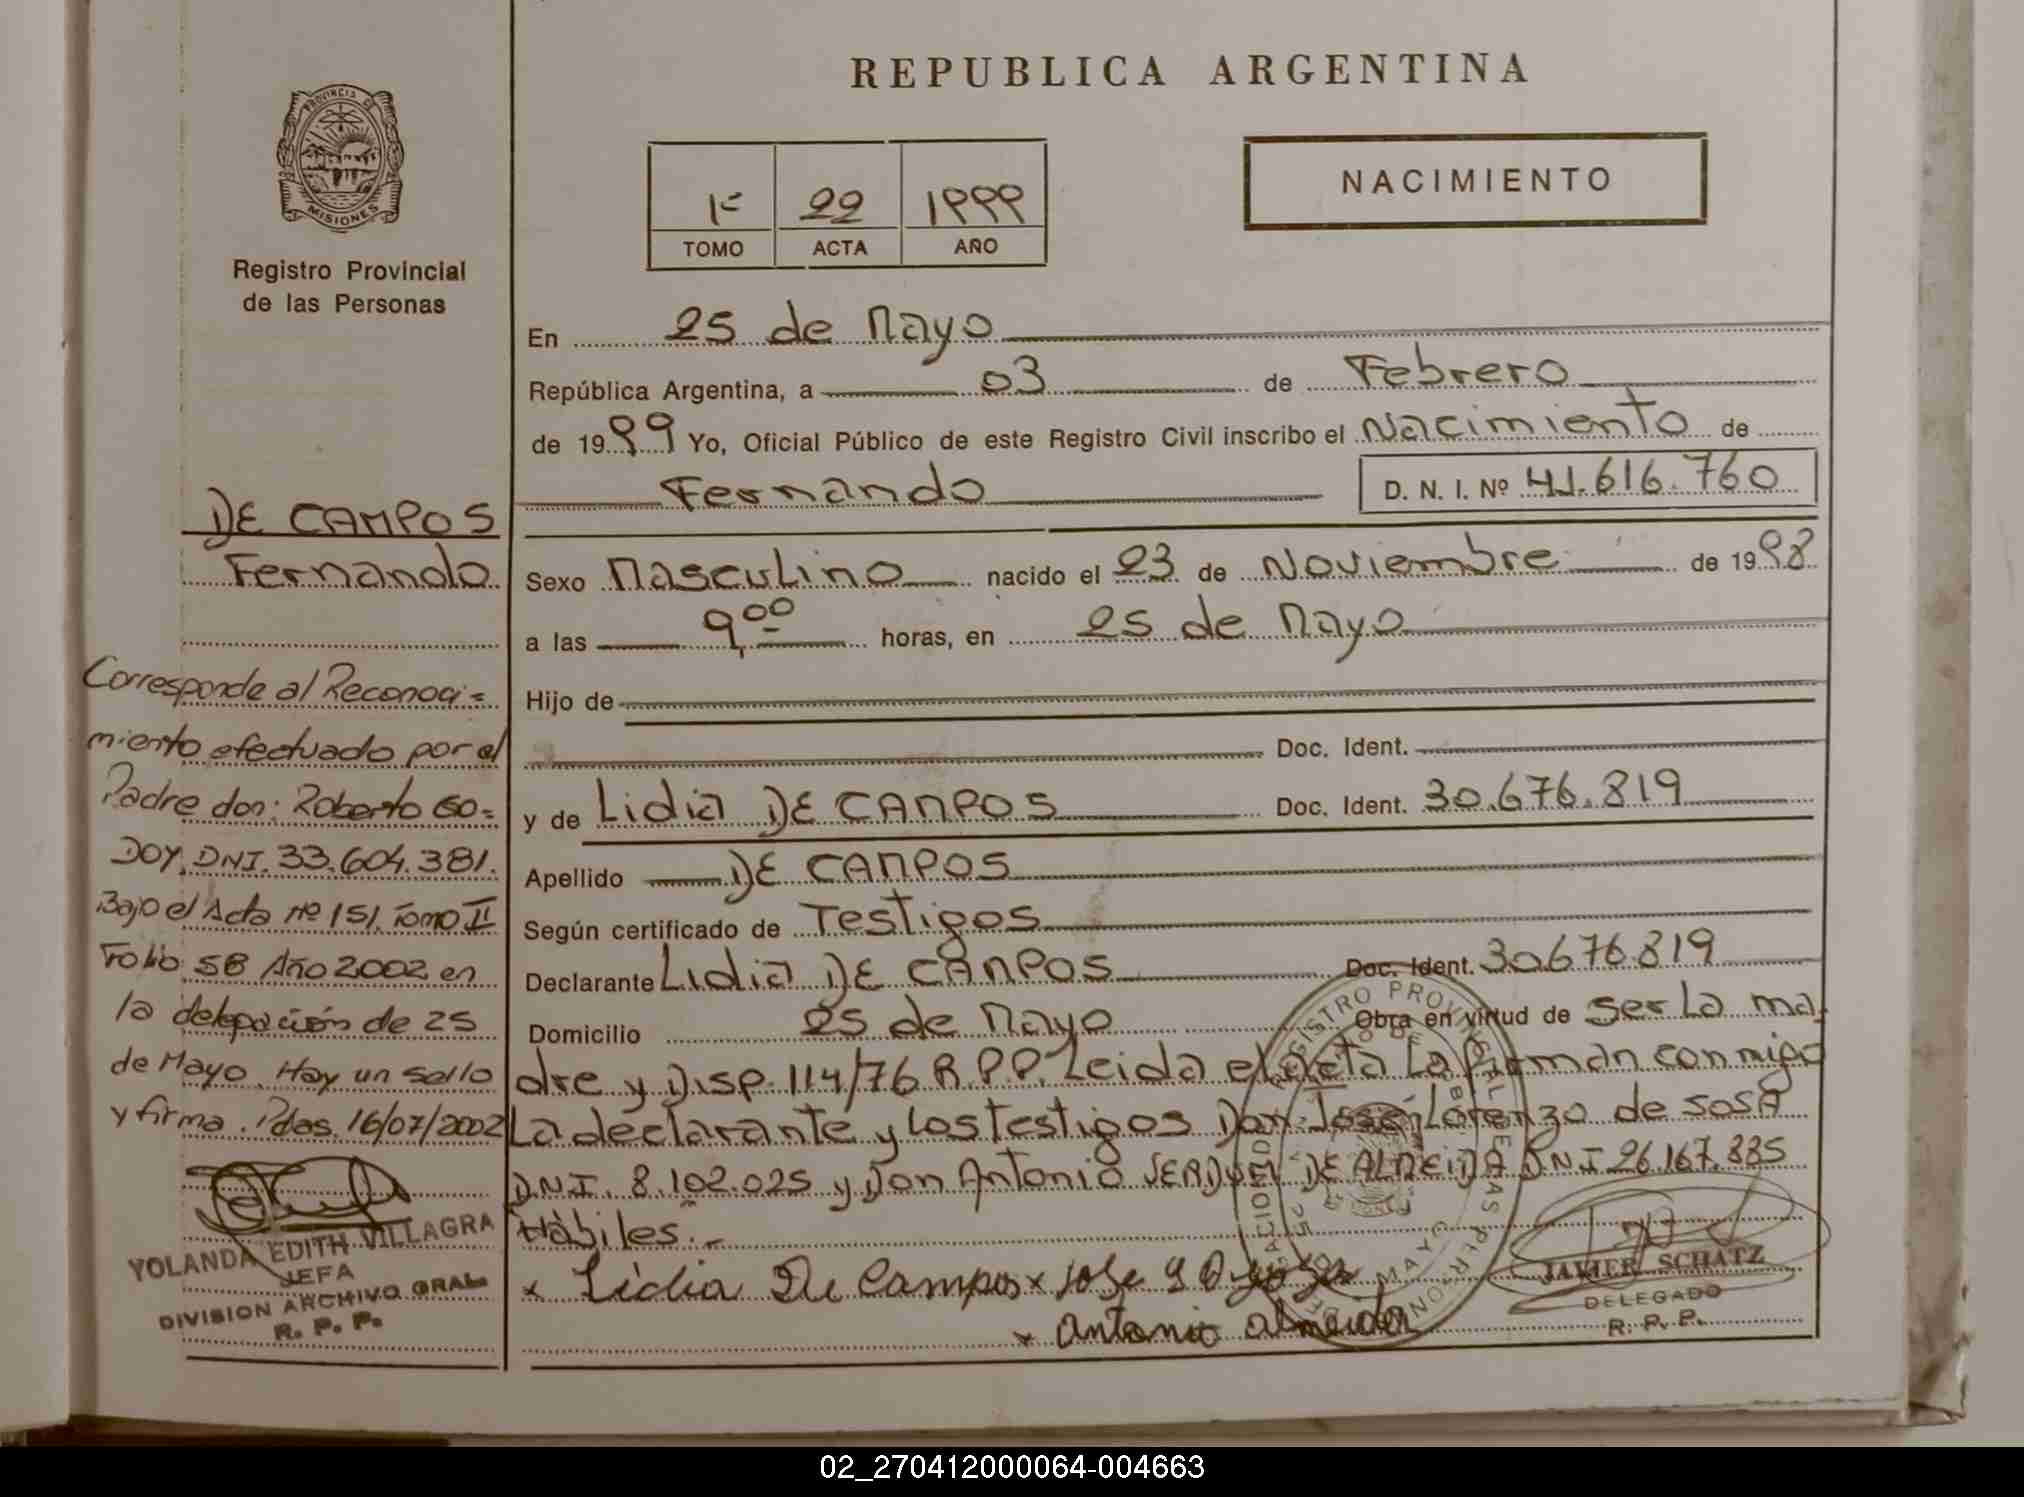 REPUBLICA ARGENTINA
PROVINCIA DE
MISIONES
Registro Provincial
de las Personas
1º 22 1999
TOMO ACTA AÑO
NACIMIENTO
En 25 de Mayo
República Argentina, a 03 de Febrero
de 1999 Yo, Oficial Público de este Registro Civil inscribo el Nacimiento de
Fernando D. N. I. Nº 41.616.760
Sexo Masculino nacido el 23 de Noviembre de 1998
a las 9,00 horas, en 25 de Mayo
Hijo de
Doc. Ident.
y de Lidia DE CAMPOS Doc. Ident. 30.676.819
Apellido DE CAMPOS
Según certificado de Testigos
Declarante Lidia DE CAMPOS Doc. Ident. 30676.819
Domicilio 25 de Mayo Obra en virtud de ser La ma-
dre y Disp. 114/76 R.P.P. Leida el acta La firman conmigo
La declarante y Los testigos Don José Lorenzo de SOSA
DNI. 8.102.025 y Don Antonio DE ALMEIDA DNI 26.167.335
Hábiles.-
x Lidia De Campos x
x Antonio almeida
JAVIER SCHATZ
DELEGADO
R. P. P.
DE CAMPOS
Fernando
Corresponde al Reconoci=
miento efectuado por el
Padre don: Roberto GO=
DOY. DNI. 33.604.381.
Bajo el Acta Nº 151. Tomo II
Folio 58 Año 2002 en
la delegación de 25
de Mayo. Hay un sello
y firma. Pdas. 16/07/2002
YOLANDA EDITH VILLAGRA
JEFA
DIVISION ARCHIVO GRAL
R. P. P.
02_270412000064-004663